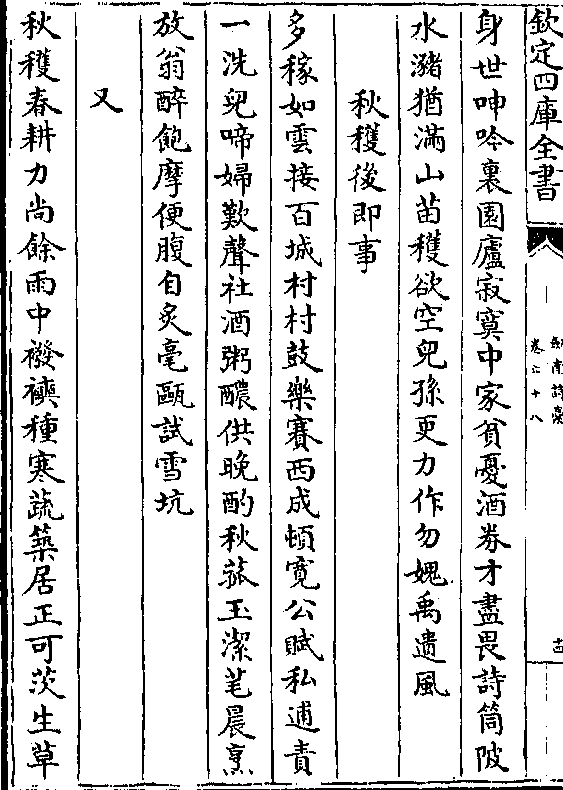 欽定四庫全書
劍南詩藁
卷七十八
十四
身世呻吟裏園廬寂寞中家貧憂酒券才盡畏詩筒陂
水瀦猶滿山苗穫欲空兒孫更力作勿媿禹遺風
秋穫後即事
多稼如雲接百城村村鼓樂賽西成頓寛公賦私逋責
一洗兒啼婦歎聲社酒粥醲供晚酌秋菰玉潔芼晨烹
放翁醉飽摩便腹自炙毫甌試雪坑
又
秋穫春耕力尚餘雨中襏襫種寒蔬築居正可茨生草